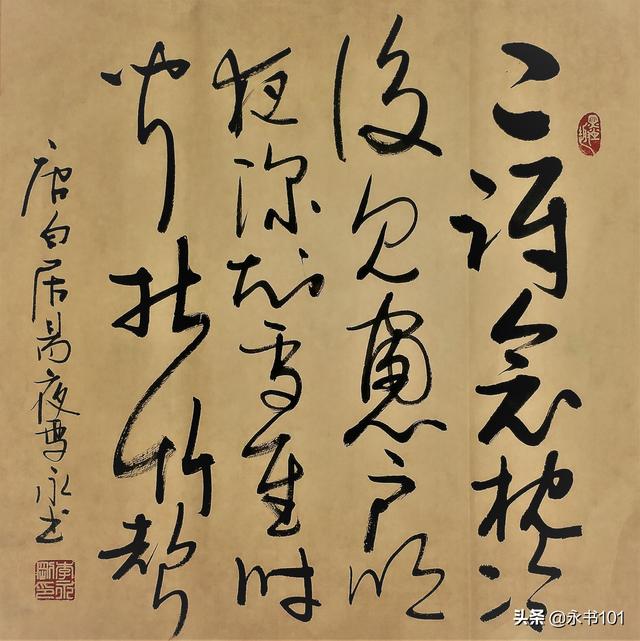 已訝衾枕冷
復見窻戶明
夜深知雪重时
闻折竹聲
唐白居易夜雪永书
头条 @永书101